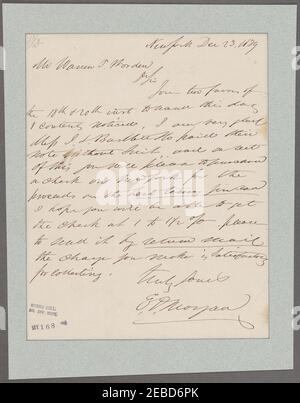 New York Dec 23. 1859
Mr Warren T. Worden
D/Sir
Your two favors of
the 18th & 20th inst to hand this day
& contents noticed. I am very glad
Mess J. & Bartlett Co paid their
Note without Suit, and on act
of this you will please to purchase
a check on for the
proceeds and send
I hope you will be able to get
the check at 1 to 1½ % please
to send it by return mail
the charge you make is satisfactory
for collecting.
Truly Yours
E D Morgan
MY 168
alamy
Image ID: 2EBD6PK
www.alamy.com